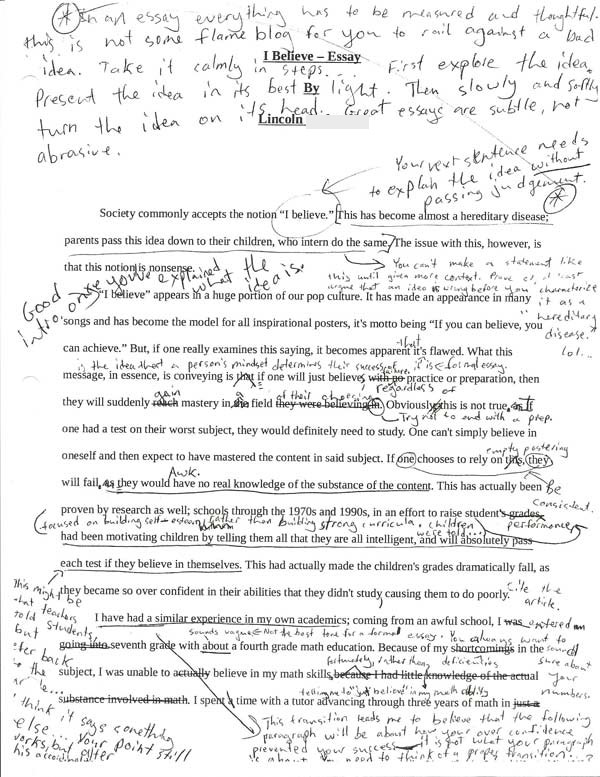 * In an essay everything has to be measured and thoughtful.
this is not some flame blog for you to rail against a bad
idea. Take it calmly in steps... First explore the idea.
Present the idea in its best light. Then slowly and softly
turn the idea on its head. Great essays are subtle, not
abrasive.
I Believe – Essay
By
Lincoln
Your next sentence needs
to explain the idea without
passing judgement.
*
Society commonly accepts the notion “I believe.” This has become almost a hereditary disease;
parents pass this idea down to their children, who intern do the same. The issue with this, however, is
that this notion is nonsense.
You can't make a statement like
this until given more context. Prove or at least
argue that an idea is wrong before you characterize
it as a
"hereditary
disease."
lol...
Good
intro once you've explained
what the
idea is.
“I believe” appears in a huge portion of our pop culture. It has made an appearance in many
songs and has become the model for all inspirational posters, it's motto being “If you can believe, you
can achieve.” But, if one really examines this saying, it becomes apparent it's flawed. What this
that
is the idea that a person's mindset determines their success or failure. it is ← formal essay.
message, in essence, is conveying is that if one will just believe, with no practice or preparation, then
regardless of
they will suddenly reach mastery in the field they were believing in. Obviously this is not true, as if
gain
of their choosing
Try not to end with a prep.
one had a test on their worst subject, they would definitely need to study. One can't simply believe in
oneself and then expect to have mastered the content in said subject. If one chooses to rely on this, they
empty posturing
Awk.
will fail, as they would have no real knowledge of the substance of the content. This has actually been
Be
consistent.
proven by research as well; schools through the 1970s and 1990s, in an effort to raise student's grades,
performance
focused on building self-esteem rather than building strong curricula. children
were told...
had been motivating children by telling them all that they are all intelligent, and will absolutely pass
each test if they believe in themselves. This had actually made the children's grades dramatically fall, as
they became so over confident in their abilities that they didn't study causing them to do poorly.
Cite the
article.
This might be
what teachers
told
students,
but
refer back
to the
article...
I have had a similar experience in my own academics; coming from an awful school, I was entered
going into seventh grade with about a fourth grade math education. Because of my shortcomings in the
sounds vague ← Not the best tone for a formal essay. You always want to
sound
sure about
your
numbers.
subject, I was unable to actually believe in my math skills, because I had little knowledge of the actual
fortunately, rather than
deficiencies
substance involved in math. I spent a time with a tutor advancing through three years of math in just a
telling me to "just believe" in my math ability
This transition leads me to believe that the following
paragraph will be about how your over confidence
prevented your success ← it is not what your paragraph
is about. You need to think of a proper transition...?
I think it says something
else... your point still
works, but